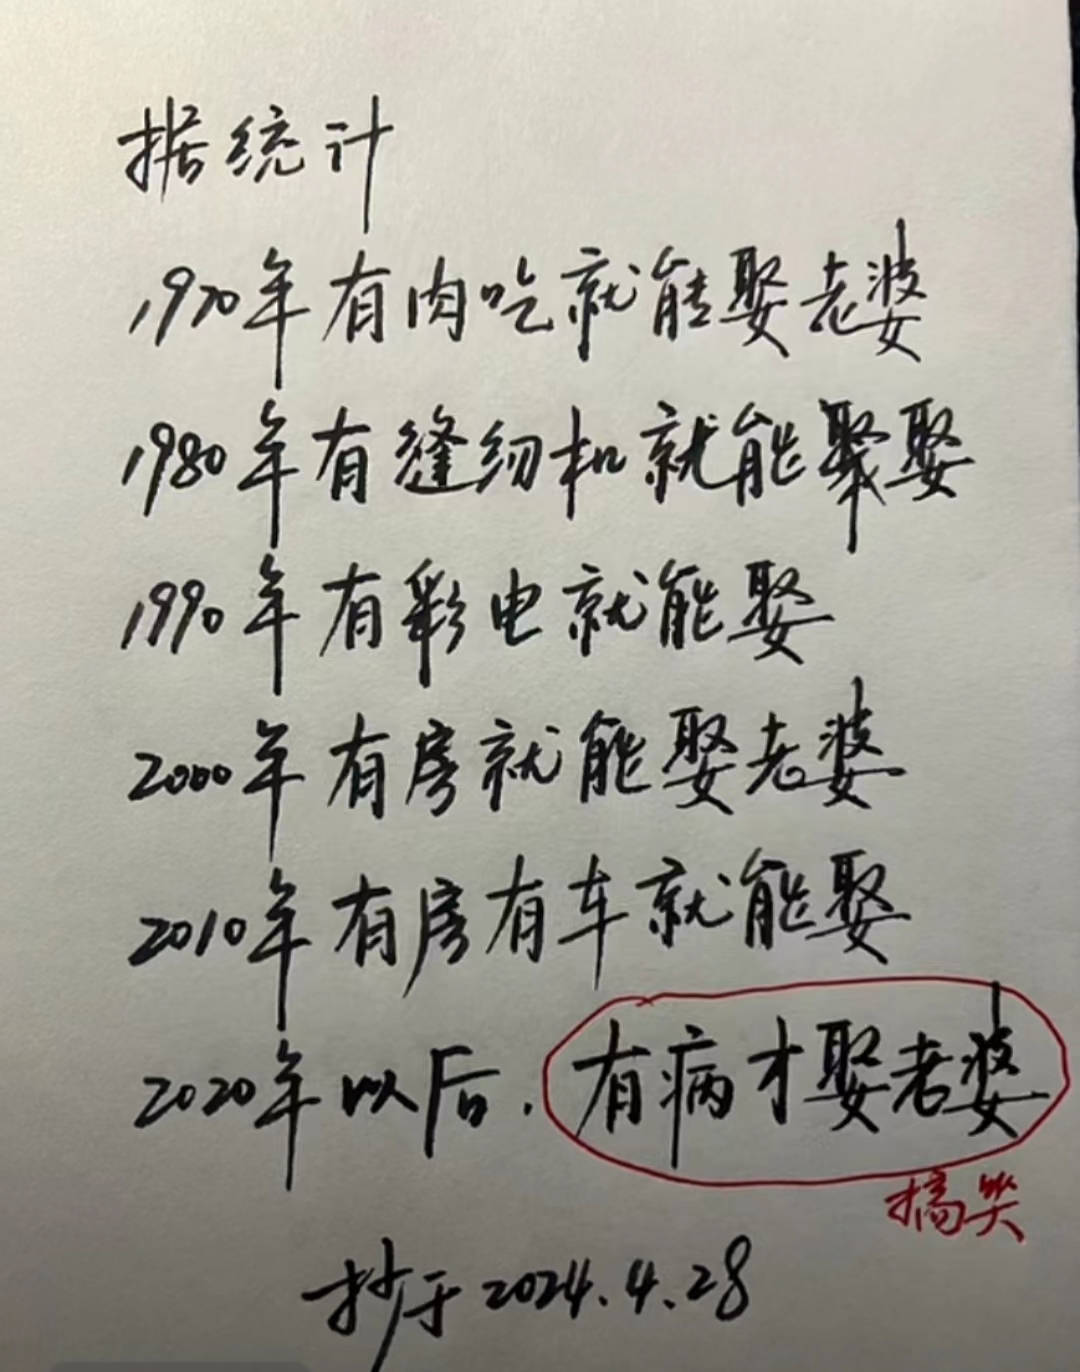 据统计
1970年有肉吃就能娶老婆
1980年有缝纫机就能聚娶
1990年有彩电就能娶
2000年有房就能娶老婆
2010年有房有车就能娶
2020年以后.有病才娶老婆
搞笑
抄于2024.4.28